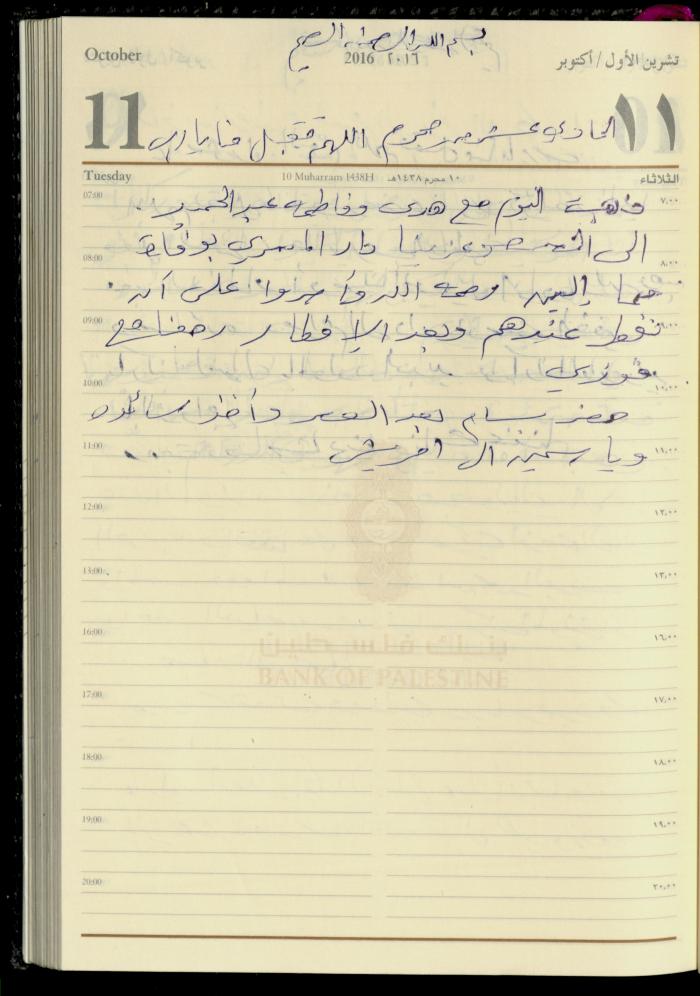 بسم الله الرحمن الرحيم
October
2016 ٢٠١٦
تشرين الأول / أكتوبر
11
١١
الحادي عشر من محرم اللهم تقبل منا يا رب
Tuesday
10 Muharram 1438H ١٠ محرم ١٤٣٨هـ
الثلاثاء
07:00 ٧,٠٠
ذهبت اليوم مع هدى وفاطمة عبد الحميد
الى دار المصري بوفاة
08:00 ٨,٠٠
رحمة الله وأصروا على أن
09:00 ٩,٠٠
نفطر عندهم وبعد الإفطار رجعنا مع
فوزي
10:00 ١٠,٠٠
حضر بسام بعد العصر وأخذ سائده
11:00 ١١,٠٠
وياسمين الى
12:00 ١٢,٠٠
13:00 ١٣,٠٠
16:00 ١٦,٠٠
بنك فلسطين
BANK OF PALESTINE
17:00 ١٧,٠٠
18:00 ١٨,٠٠
19:00 ١٩,٠٠
20:00 ٢٠,٠٠